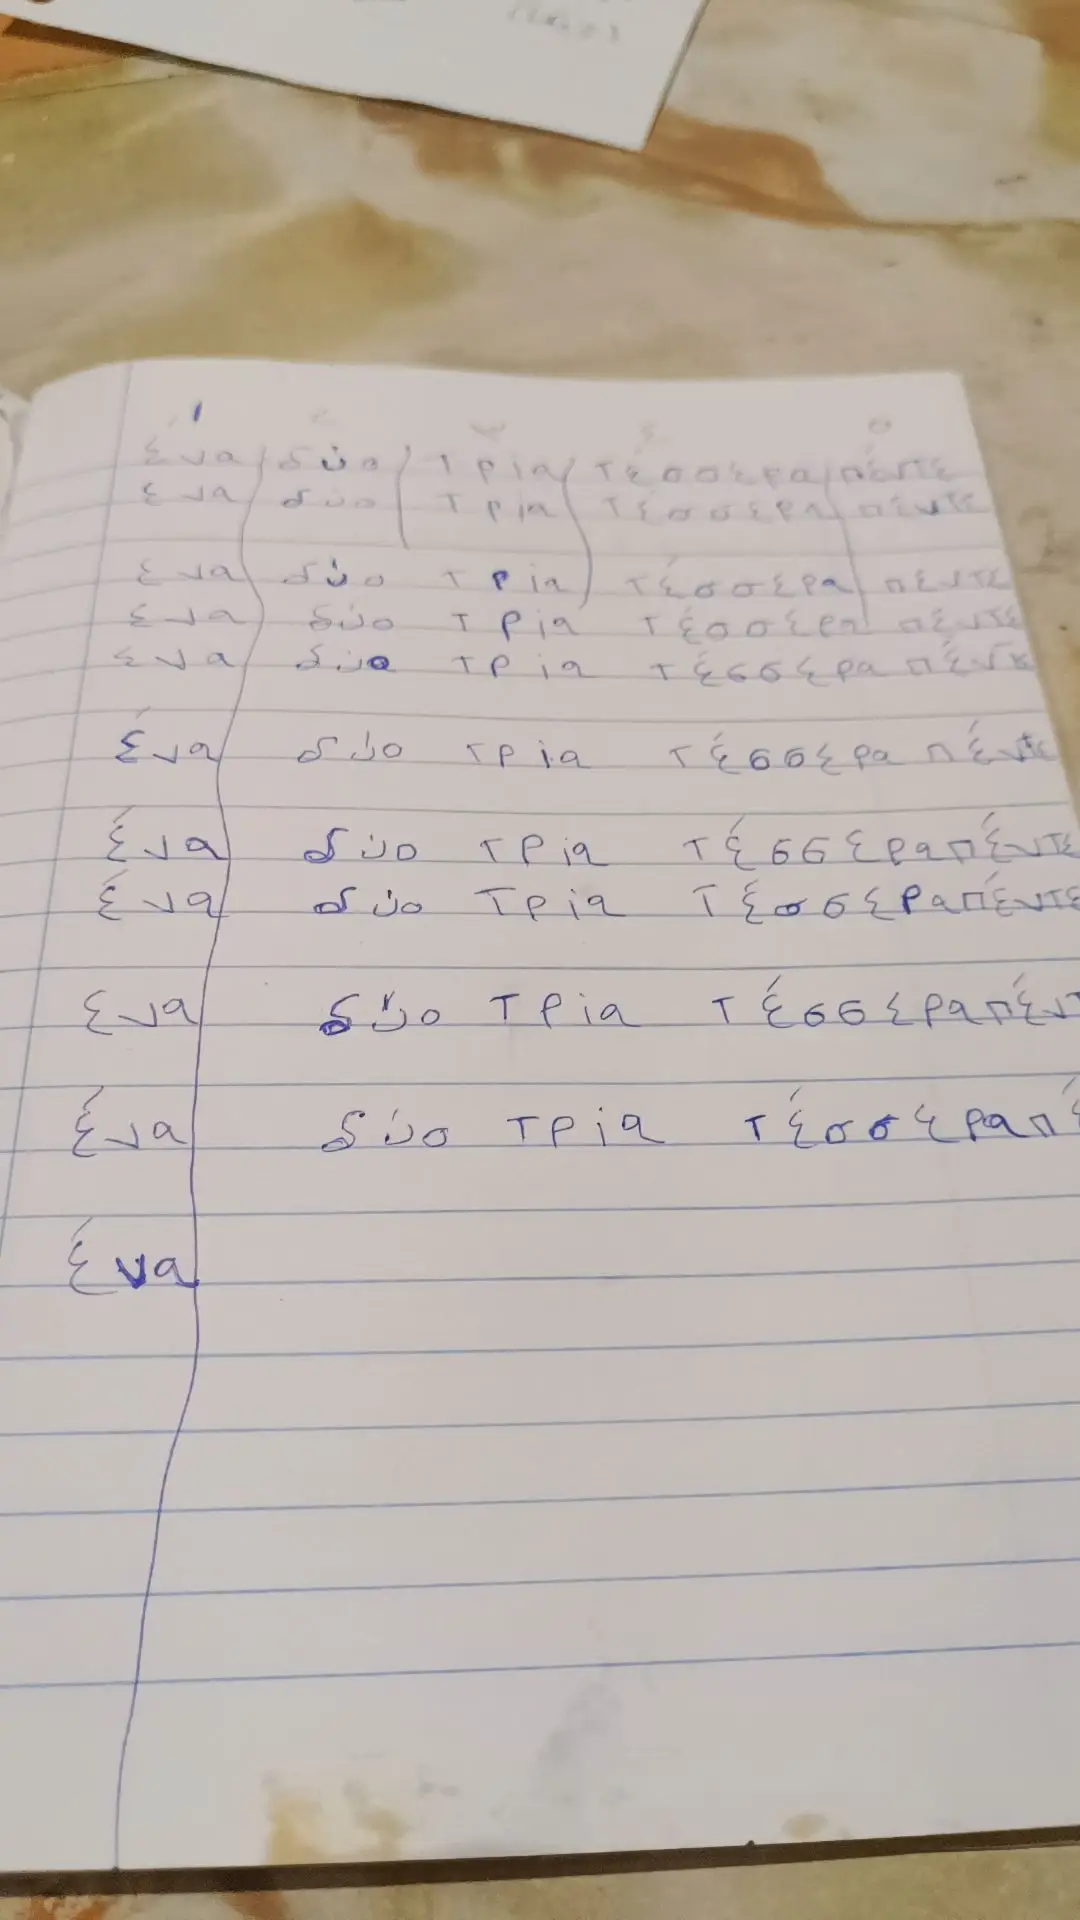 1
ένα δύο τρία τέσσερα πέντε
ένα δύο τρία τέσσερα πέντε
ένα δύο τρία τέσσερα πέντε
ένα δύο τρία τέσσερα πέντε
ένα δύο τρία τέσσερα πέντε
ένα δύο τρία τέσσερα πέντε
ένα δύο τρία τέσσερα πέντε
ένα δύο τρία τέσσερα πέντε
ένα δύο τρία τέσσερα πέντ
ένα δύο τρία τέσσερα πέ
ένα